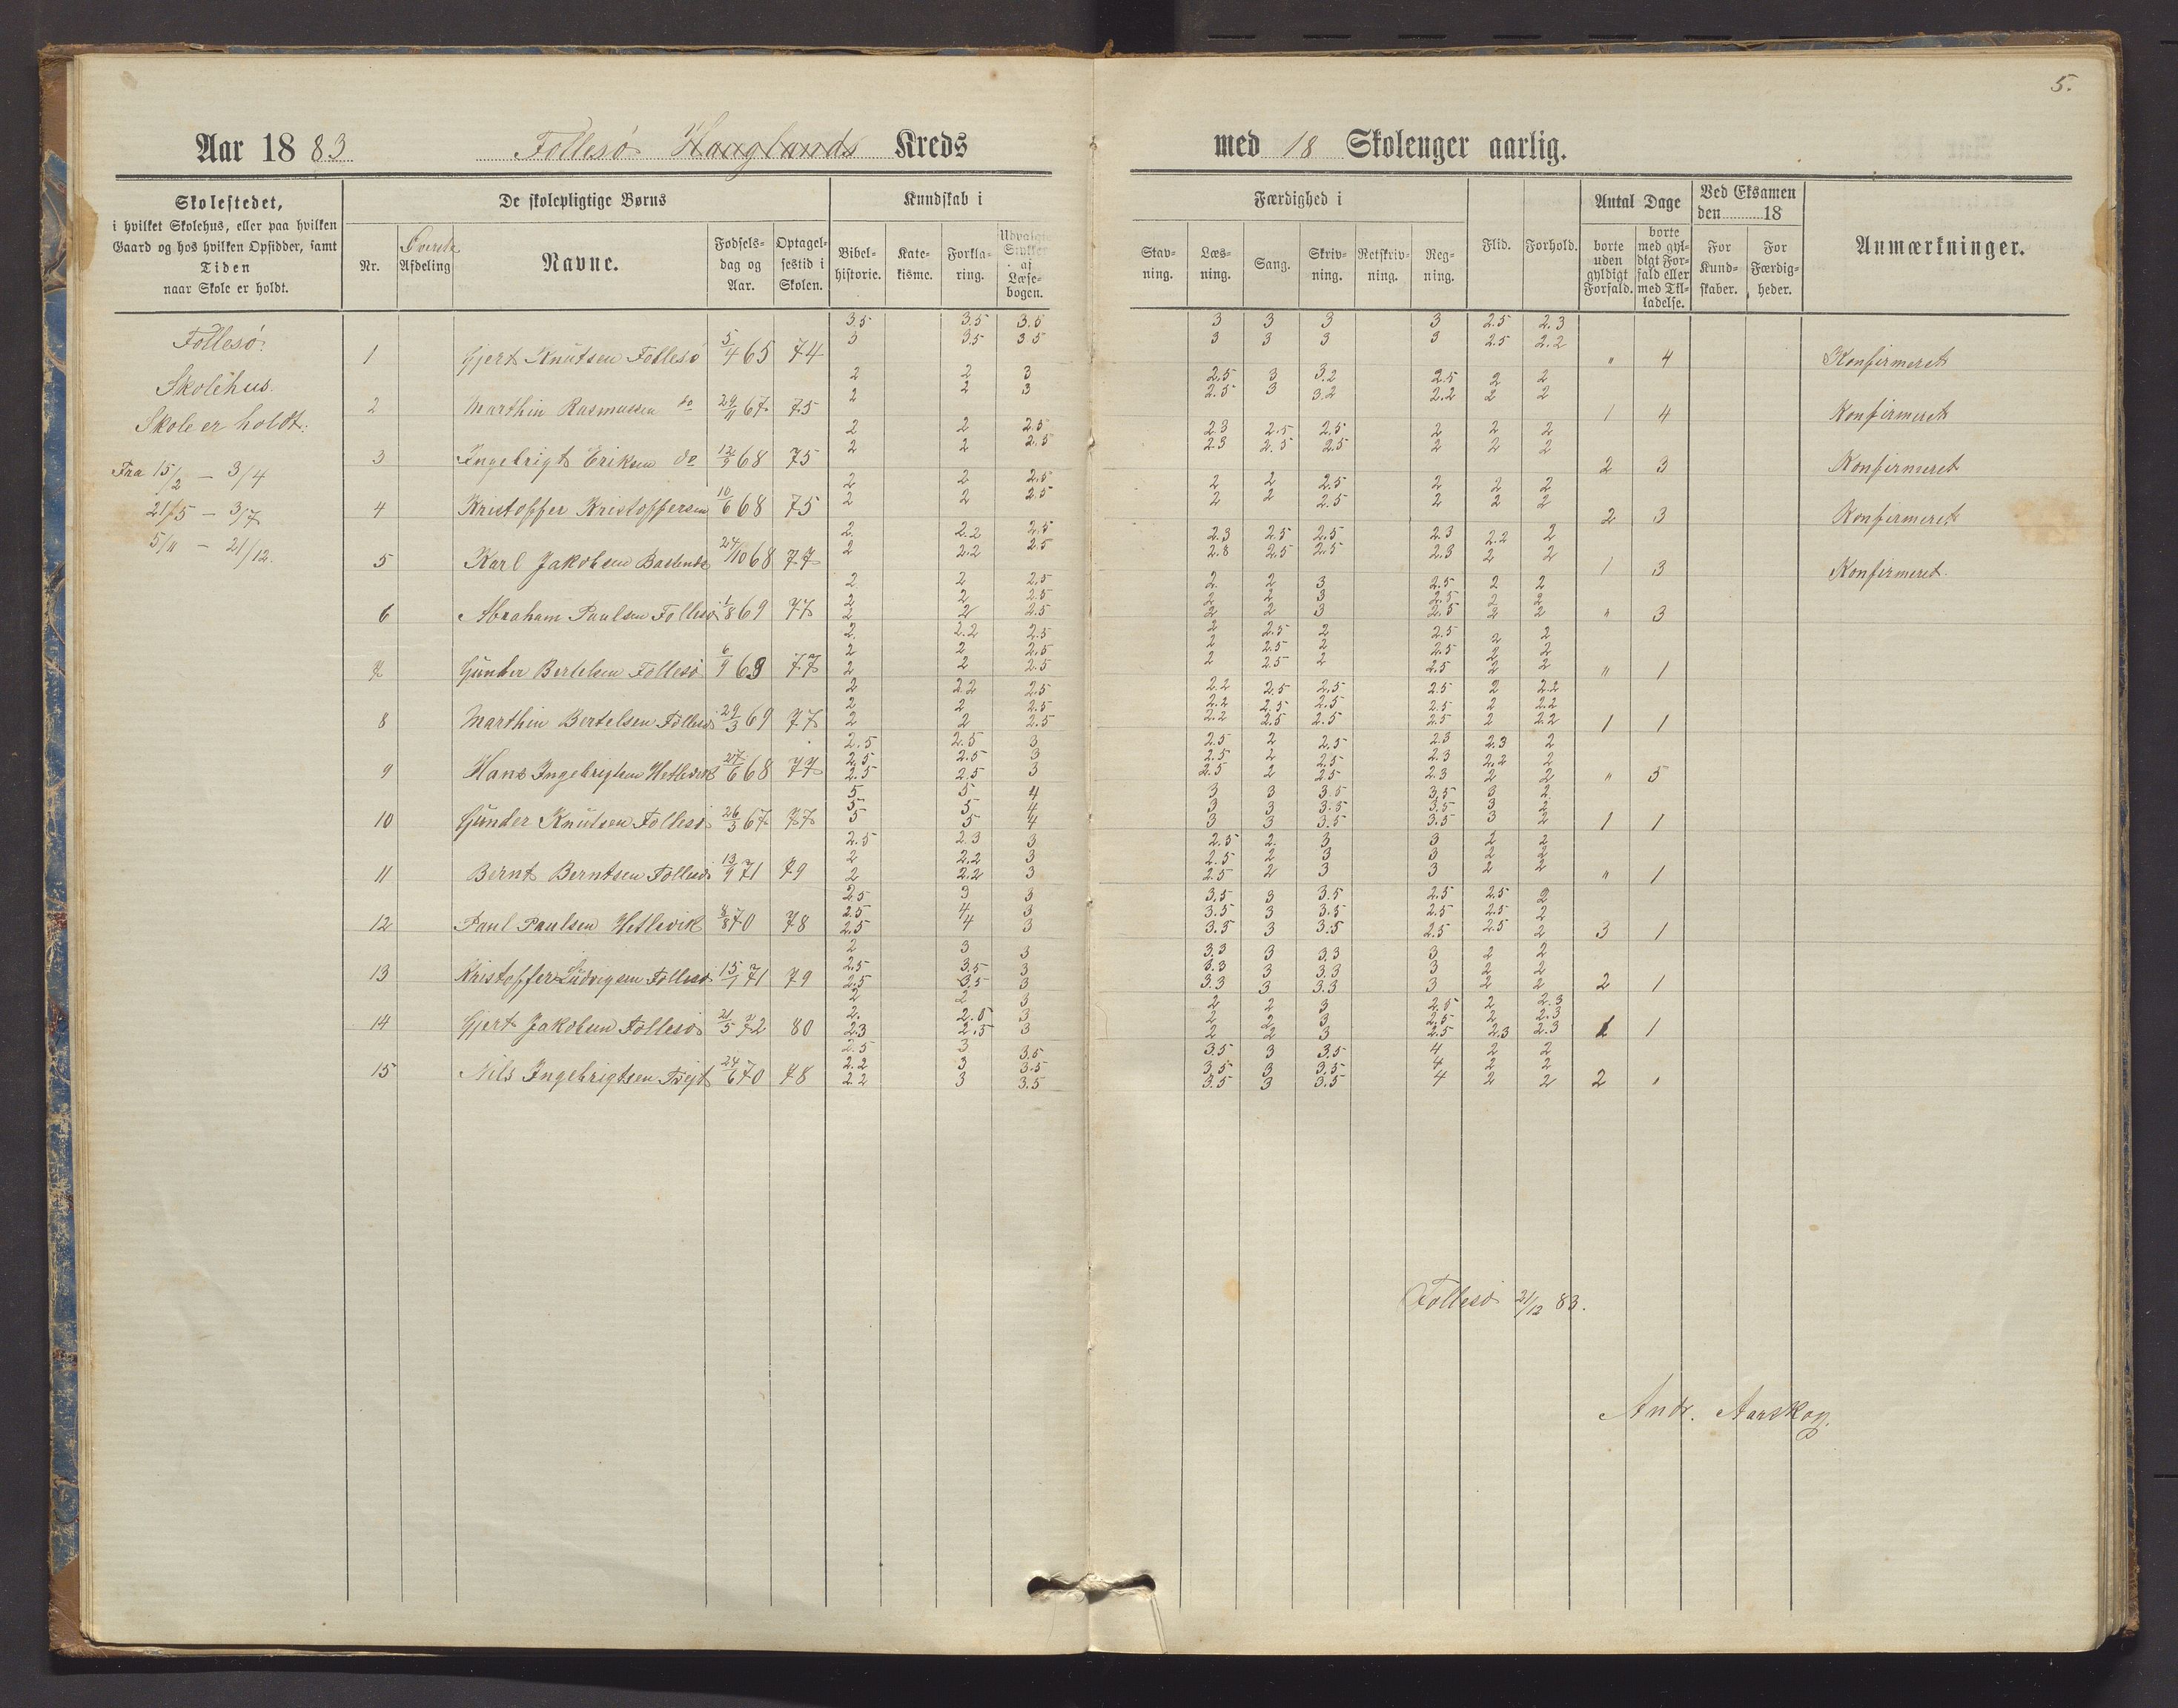 5.
Aar 1883 Follesø Hauglands Kreds med 18 Skolenger aarlig.
Skolestedet,
i hvilket Skolehus, eller paa hvilken
Gaard og hos hvilken Opsidder, samt
Tiden
naar Skole er holdt.
De skolepligtige Børns
Nr.
Øverste
Afdeling
Navne.
Fødsels-
dag og
Aar.
Optagel-
sestid i
Skolen.
Kundskab i
Bibel-
historie.
Kate-
kisme.
Forkla-
ring.
Udvalgte
Stykker
af
Læse-
bogen.
Færdighed i
Stav-
ning.
Læs-
ning.
Sang.
Skriv-
ning.
Retskriv-
ning.
Reg-
ning.
Flid.
Forhold.
Antal Dage
borte
uden
gyldigt
Forfald.
borte
med gyl-
digt For-
fald eller
med Til-
ladelse.
Ved Eksamen
den 18
For
Kund-
skaber.
For
Færdig-
heder.
Anmærkninger.
Follesø
Skolehus.
Skole er holdt:
Fra 15/2 - 3/4
21/5 - 3/7
5/11 - 21/12.
3.5 3.5 3.5 3 3 3 3 2.5 2.3
3 3.5 3.5 3 3 3 3 2.5 2.2
1 Gjert Knutsen Follesø 5/4 65 74 " 4 Konfirmeret
2 2 3 2.5 3 3.2 2.5 2 2
2 2 3 2.5 3 3.2 2.2 2 2
2 Marthin Rasmussen do 29/11 67 75 1 4 Konfirmeret
2 2 2.5 2.3 2.5 2.5 2 2 2
2 2 2.5 2.3 2.5 2.5 2 2 2
3 Ingebrigt Eriksen do 12/9 68 75 2 3 Konfirmeret
2 2 2.5 2 2 2.5 2 2 2
2 2 2.5 2 2 2.5 2 2 2
4 Kristoffer Kristoffersen 10/6 68 75 2 3 Konfirmeret
2. 2.2 2.5 2.3 2.5 2.5 2.3 2.2 2
2 2.2 2.5 2.8 2.5 2.5 2.3 2 2
5 Karl Jakobsen 24/10 68 77 1 3 Konfirmeret.
2 2 2.5 2 2 3 2.5 2 2
2 2 2.5 2 2 3 2.5 2 2
2 2 2.5 2 2 3 2.5 2 2
6 Abraham Paulsen Follesø 1/8 69 77 " 3
2. 2.2 2.5 2 2.5 2 2.5 2 2
2 2 2.5 2 2.5 2 2.5 2 2
2 2 2.5 2 2.5 2 2.5 2 2
7 Gunder Bertelsen Follesø 6/9 69 77 " 1
2 2.2 2.5 2.2 2.5 2.5 2.5 2 2.2
2 2 2.5 2.2 2.5 2.5 2.5 2 2.2
2 2 2.5 2.2 2.5 2.5 2.5 2 2.2
8 Marthin Bertelsen Follesø 29/3 69 77 1 1
2.5 2.5 3 2.5 2 2.5 2.3 2.3 2
2.5 2.5 3 2.5 2 2.5 2.3 2.2 2
2.5 2.5 3 2.5 2 2.5 2.3 2 2
9 Hans Ingebrigtsen Hetlevik 27/6 68 77 " 5
5 5 4 3 3 3.5 3.5 3 2
5 5 4 3 3 3.5 3.5 3 2
5 5 4 3 3 3.5 3.5 3 2
10 Gunder Knutsen Follesø 26/3 67 77 1 1
2.5 2.3 3 2.5 2. 3 3 2 2
2 2.2 3 2.5 2 3 3 2 2
2 2.2 3 2.5 2 3 3 2 2
11 Bernt Berntsen Follesø 13/9 71 79 " 1
2.5 3 3 3.5 3 3.5 2.5 2.5 2
2.5 4 3 3.5 3 3.5 2.5 2.5 2
2.5 4 3 3.5 3 3.5 2.5 2.5 2
12 Paul Paulsen Hetlevik 70 78 3 1
2 3 3 3.3 3 3.3 3 2 2
2.5 3.5 3 3.3 3 3.3 3 2 2
2.5 3.5 3 3.3 3 3.3 3 2 2
13 Kristoffer Ludvigsen Follesø 15/1 71 79 2 1
2 2 3 2 2 3 2.5 2 2.3
2. 2.5 3 2 2 3 2.5 2 2.3
2.3 2.5 3 2 2 3 2.5 2.3 2.3
14 Gjert Jakobsen Follesø 21/5 72 80 1 1
2.5 3 3.5 3.5 3 3.5 4 2 2
2.2 3 3.5 3.5 3 3.5 4 2 2
2.2 3 3.5 3.5 3 3.5 4 2 2
15 Nils Ingebrigtsen Tvejt 24/6 70 78 2 "
Follesø 21/12 83.
Andr. Aarskog.